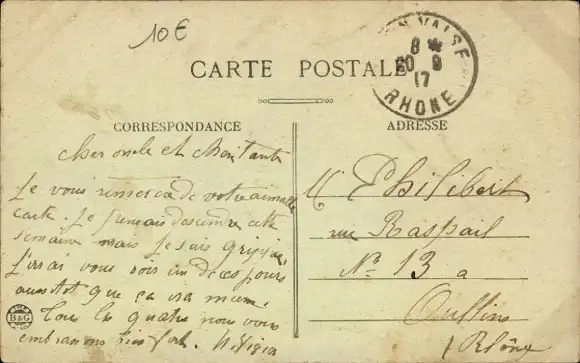 10€
CARTE POSTALE
EN-VALSE
8 *
20 9
17
RHONE
CORRESPONDANCE
ADRESSE
Cher oncle et Cher tante
Je vous remercie de votre aimable
carte. Je pensais descendre cette
semaine mais je suis grippé,
J'irai vous voir un de ces jours
aussitot que ça ira mieux.
Tous les quatre nous vous
embrassons bien fort.
B&G
M Philibert
rue Raspail
N° 13 a
Oullins
Rhône